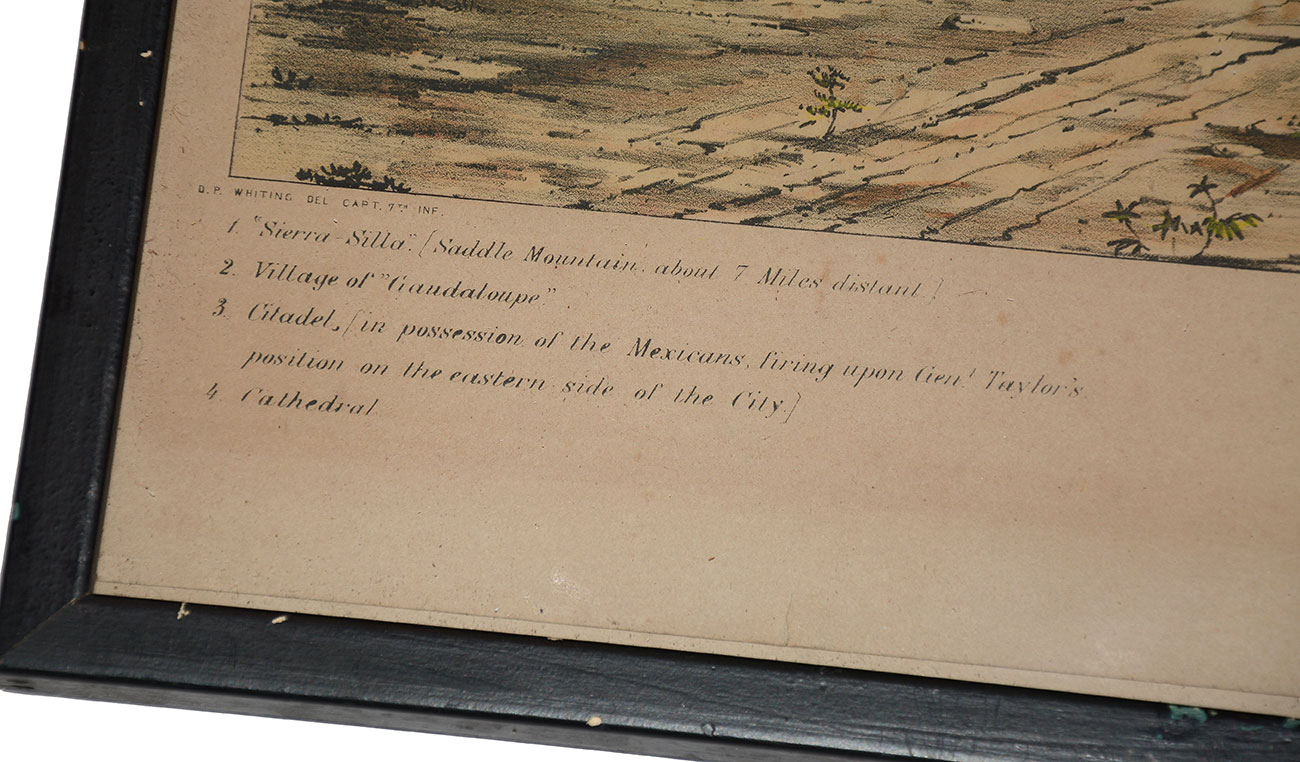 D.P. WHITING DEL CAPT. 7TH INF.
1. "Sierra-Silla". [Saddle Mountain, about 7 Miles distant]
2. Village of "Gaudaloupe".
3. Citadel, [in possession of the Mexicans, firing upon Genl. Taylor's
position on the eastern side of the City.]
4 Cathedral